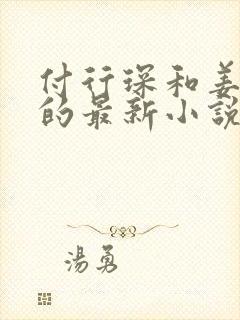 付行琛和姜
的最新小說
湯勇